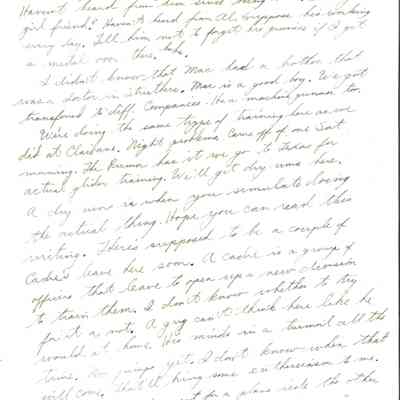 Haven't heard from him since
girl friend? Haven't heard from Al. Suppose he's working
every day. Tell him not to forget his promise if I get
a medal over there. haha.
I didn't know that Mac had a brother that
was a doctor in Struthers. Mac is a good boy. We got
transfered to diff. Companies. He's a machine gunner too.
We're doing the same type of training here as we
did at Claiborne. Night problems came off of me Sat.
morning. The Rumor has it we go to Texas for
actual glider training. We'll get dry runs here.
A dry run is when you simulate doing
the actual thing. Hope you can read this
writing. There's supposed to be a couple of
Cadre's leave here soon. A cadre is a group of
officers that leave to open up a new division
to train them. I don't know whether to try
for it or not. A guy can't think here like he
would at home. His minds in a turmoil all the
time. No jumps yet, I don't know when that
will come. That'll bring some enthusiasm to me.
for a plane ride the other